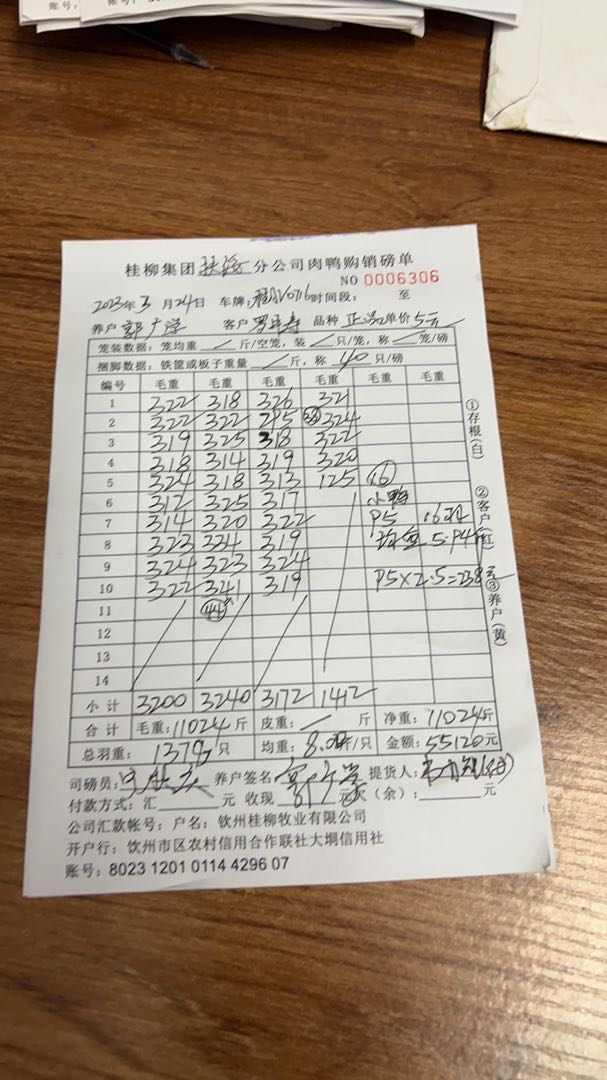 账号:
桂柳集团 分公司肉鸭购销磅单
NO 0006306
2023年3月24日 车牌: 时间段: 至
养户 郭广学 客户 品种 正品 单价 5元
笼装数据:笼均重 / 斤/空笼,装 / 只/笼,称 / 笼/磅
捆脚数据:铁筐或板子重量 / 斤,称 40 只/磅
编号 毛重 毛重 毛重 毛重 毛重 毛重
1 322 318 326 32
2 322 322 295 324
3 319 325 318 322
4 318 314 319 320
5 324 318 313 125 16
6 312 325 317 小鸭
7 314 320 322 P5
8 323 334 319 均重
9 324 323 324
10 322 341 319 P5×2.5=238元
11 44
12
13
14
小计 3200 3240 3172 1412
合计 毛重:11024斤 皮重: / 斤 净重:11024斤
总羽重: 1378只 均重: 8.00斤/只 金额:55120元
司磅员: 养户签名: 提货人:
付款方式:汇 元 收现 元 欠(余): 元
公司汇款帐号:户名:钦州桂柳牧业有限公司
开户行:钦州市区农村信用合作联社大垌信用社
账号:8023 1201 0114 4296 07
①存根(白)
②客户(红)
③养户(黄)